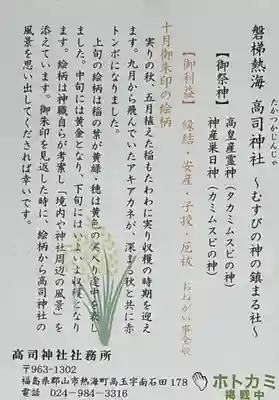 磐梯熱海 高司神社 ～むすびの神の鎮まる社～
たかつかじんじゃ
【御祭神】
高皇産霊神（タカミムスビの神）
神産巣日神（カミムスビの神）
【御利益】 縁結・安産・子授・厄祓 おねがい事全般
十月御朱印の絵柄
実りの秋、五月植えた稲もたわわに実り収穫の時期を迎え
ます。九月から飛んでいたアキアカネが、深まる秋と共に赤
トンボになりました。
上旬の絵柄は稲の葉が黄緑・穂は黄色の実入り途中を表し
ました。中旬には黄金となり、下旬にはいよいよ収穫となり
ます。絵柄は神職自らが考案し「境内や神社周辺の風景」を
添えています。御朱印を見返した時に、絵柄から高司神社の
風景を思い出してくだされば幸いです。
高司神社社務所
〒963-1302
福島県郡山市熱海町高玉字南石田178
電話 024-984-3316
ホトカミ
掲載中